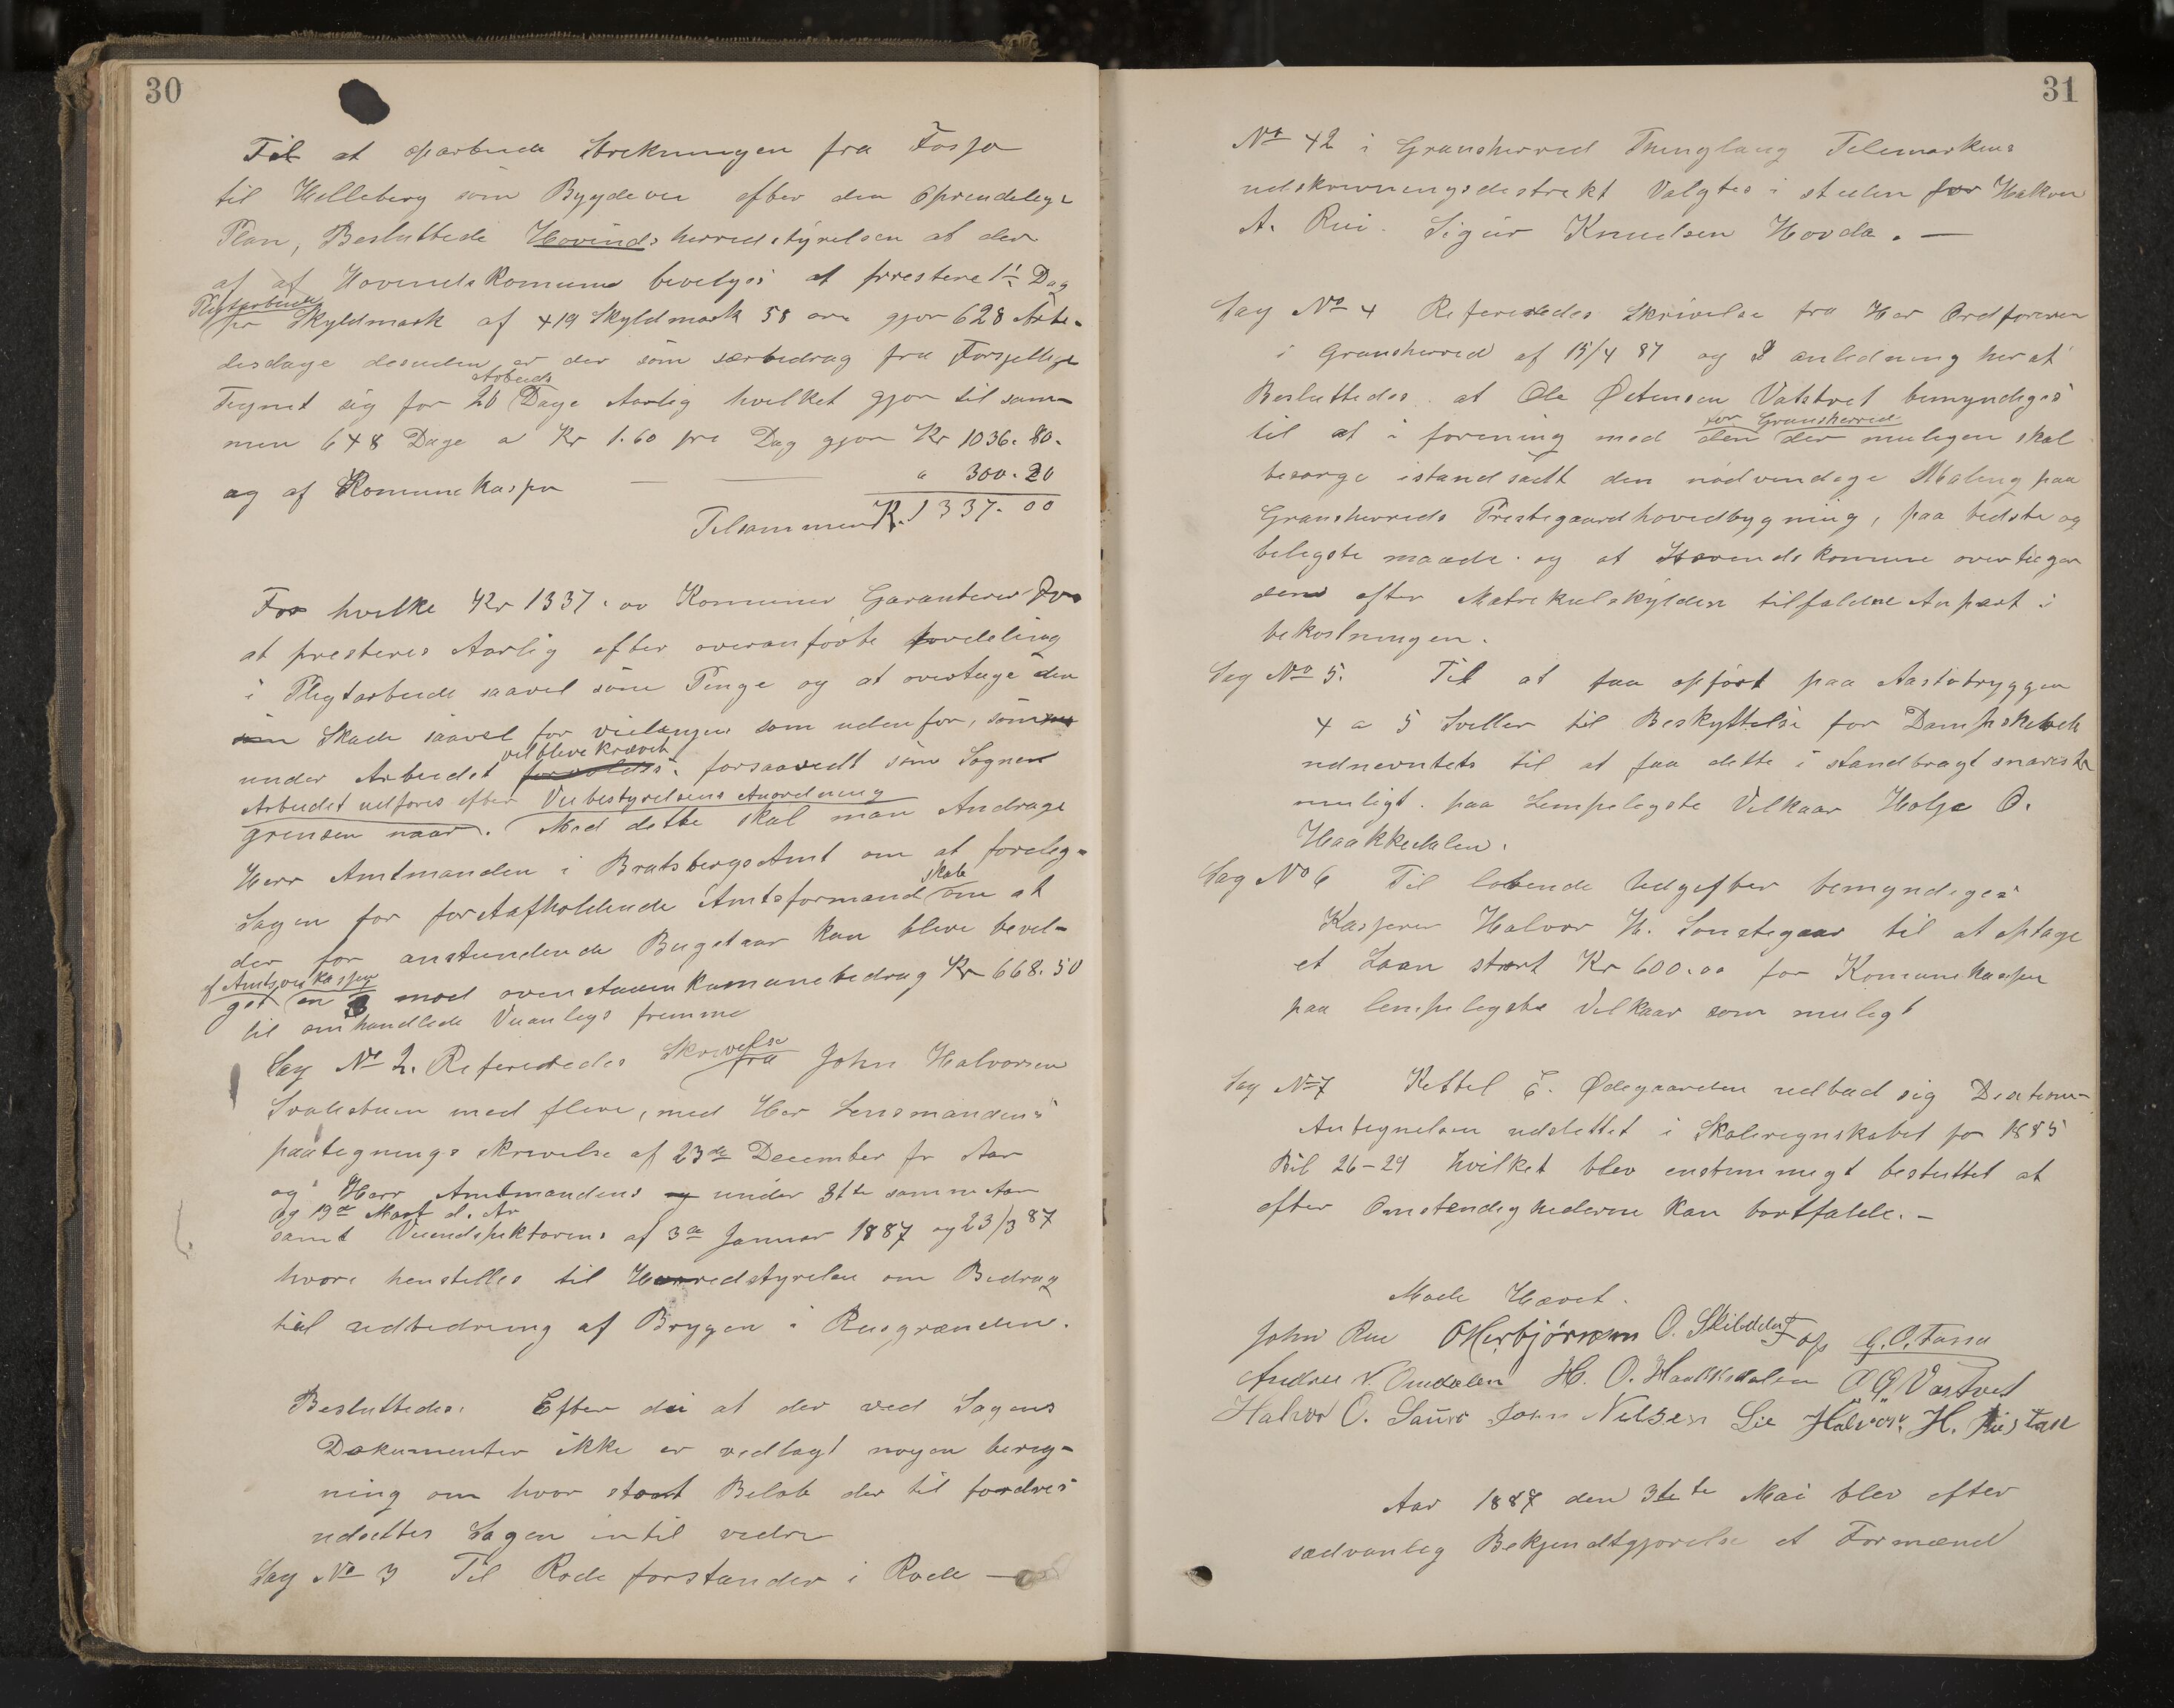 30
Til at oparbeide Strekningen fra Fosso
til Helleberg som Bygdevei efter den Oprendelige
Plan, Besluttede Hovinds herredstyrelsen at der
af af Hovinds Komune bevelges at prestere 1½ Dag
Pligtarbeide
pr Skyldmark af 419 Skyldmark 58 øre gjør 628 Arbe-
desdage desuden er der som særbedrag fra
Arbeids
Tegnet sig for 20 Dage Aarlig hvilket gjør til sam-
men 648 Dage a Kr 1.60 pre Dag gjør Kr 1036.80.
og af Komunekassen — — " 300.20
Tilsammen Kr. 1337.00
For hvilke Kr 1337.00 Komunen Garanterer for
at presteres Aarlig efter overanførte fordeling
i Pligtarbeide saavel som Penge og at overtage den
Skade saavel for veilængen som udenfor, som
vil blive krævet
under Arbeidet forvoldes. forsaavidt som Sognen
Arbeidet udføres efter Veibestyrelsens Anordning
grensen naar. Med dette skal man Andrage
Herr Amtmanden i Bratsbergs Amt om at foreleg-
skab
Sagen for førstafholdende Amtsformand om at
der for anstundende Bugetaar kan blive bevel-
af Amtsveikassen
get en mod ovenstaaende Komunebedrag Kr 668.50
til omhandlede Veianlegs fremme
Sag No 2. Refereredes Skrivelse fra John Halvorsen
med flere, med Her Lensmandens
paategnings skrivelse af 23de December f. Aar
og Herr Amtmandens og under 31te samme Aar
og 19de Mart d. Ar
samt Veiinspektørens af 3de Januar 1887 og 23/3 87
hvori henstilles til Herredstyrelsen om Bedrag
til udbedring af Bryggen i Rusgrænden.
Besluttedes: Efter di at der ved Sagens
Dokumenter ikke er vedlagt nogen bereg-
ning om hvor stort Beløb der til fordres
udsettes Sagen intil videre
Sag No 3 Til Rode forstander i Rode —
31
No 42 i Gransherred Thinglaug Telemarkens
udskrivningsdestrekt Valgtes i steden for Halvor
A. Rui. Sigur Knudsen Hovda. —
Sag No 4 Refereredes Skrivelse fra Her Ordføreren
i Gransherred af 15/4 87 og I anledning herat
Besluttedes at Ole Østensen Vatstvet bemyndiges
for Gransherred
til at i forening med den der muligen skal
besørge istandsadt den nødvendige Maling paa
Gransherreds Prestegaardhovedbygning, paa bedste og
beligste maade og at Hovinds komune overtager
den efter Matrekulskylden tilfaldne Anpart i
bekostningen.
Sag No 5. Til at faa opført paa Aastøbryggen
4 a 5 Sviller til Beskyttelse for Dampskibet
udnevntes til at faa dette i standbragt snarest
muligt paa Lempeligste Vilkaar Holje O.
Haakkedalen.
Sag No 6 Til løbende Udgifter bemyndiges
Kasseren Halvor H. Sonstegaar til at optage
et Laan stort Kr 600.00 for Komunekassen
paa lempeligste Vilkaar som muligt
Sag No 7 Kettel E. Ødegaarden udbad sig
Antegnelsen udslettet i Skoleregnskabet for 1885
Bil 26-29 hvilket blev enstemmigt besluttet at
efter Omstendighederne kan bortfalde. —
Møde Hævet.
John Rue OHerbjørnsen O. Skibddal G. O. Fossa
Andres N. Omdalen H. O. Haakkedalen O Ø Vastvet
Halvor O. Sauro John Nielsen Lie Halvor H.
Aar 1887 den 3te te Mai blev efter
sædvanlig Bekjendtgjørelse et Formænd